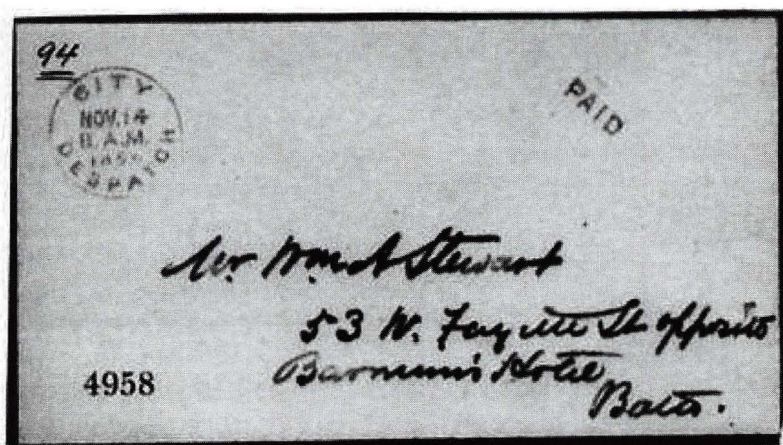 94
CITY
NOV. 14
8 A.M.
DESPATCH
PAID
Mr Wm A Stewart
53 W. Fayette St opposite
Barnum's Hotel
Balto.
4958